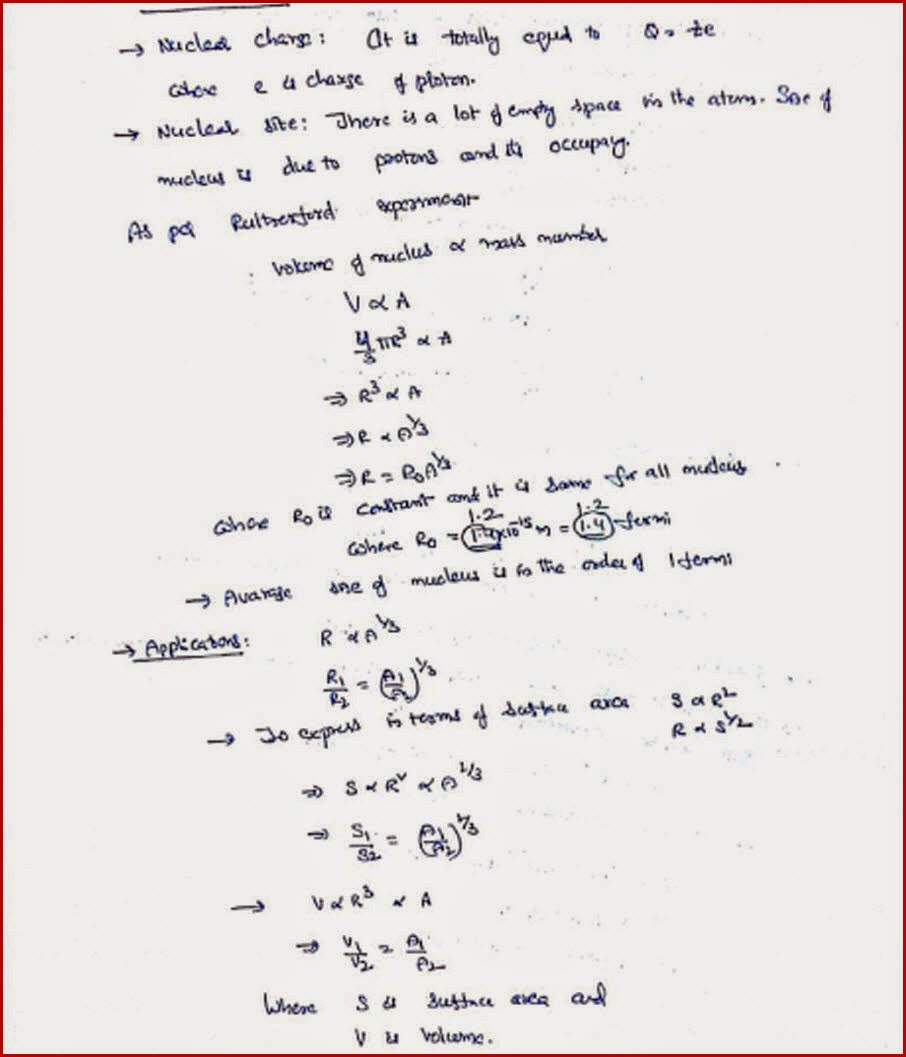 → Nuclear charge: It is totally equal to Q = ze
where e is charge of proton.
→ Nuclear size: There is a lot of empty space in the atom. Size of
nucleus is due to protons and its occupany.
As per Rutherford experiment
Volume of nuclus ∝ mass number
V ∝ A
4/3 πR³ ∝ A
⇒ R³ ∝ A
⇒ R ∝ A^1/3
⇒ R = R₀A^1/3
where R₀ is constant and it is same for all nucleus .
1.2 1.2
where R₀ = 1.4×10^-15 m = 1.4 fermi
→ Avarage size of nucleus is in the order of 1 fermi
→ Applications: R ∝ A^1/3
R₁/R₂ = (A₁/A₂)^1/3
→ To express in terms of surface area S ∝ R²
R ∝ S^1/2
⇒ S ∝ R² ∝ A^2/3
⇒ S₁/S₂ = (A₁/A₂)^2/3
→ V ∝ R³ ∝ A
⇒ V₁/V₂ = A₁/A₂
Where S is surface area and
V is volume.